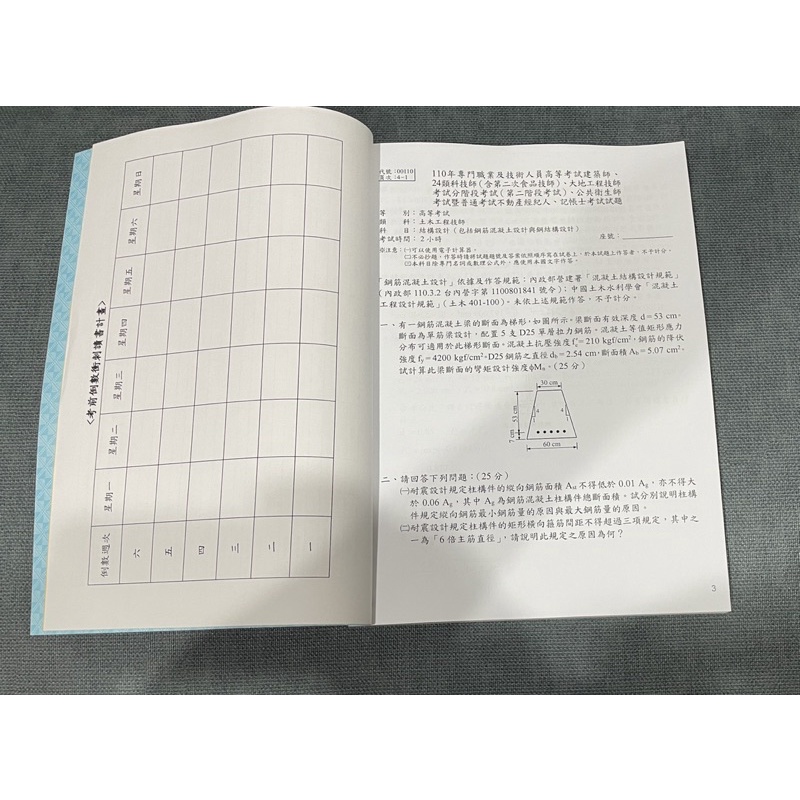 <考前倒數衝刺讀書計畫>
倒數週次 星期一 星期二 星期三 星期四 星期五 星期六 星期日
六
五
四
三
二
一
代號：00110
頁次：4-1
110年專門職業及技術人員高等考試建築師、
24類科技師（含第二次食品技師）、大地工程技師
考試分階段考試（第二階段考試）、公共衛生師
考試暨普通考試不動產經紀人、記帳士考試試題
等 別：高等考試
類 科：土木工程技師
科 目：結構設計（包括鋼筋混凝土設計與鋼結構設計）
考試時間：2小時
座號：
※注意：㈠可以使用電子計算器。
㈡不必抄題，作答時請將試題題號及答案依照順序寫在試卷上，於本試題上作答者，不予計分。
㈢本科目除專門名詞或數理公式外，應使用本國文字作答。
「鋼筋混凝土設計」依據及作答規範：內政部營建署「混凝土結構設計規範」
（內政部 110.3.2 台內營字第 1100801841 號令）；中國土木水利學會「混凝土
工程設計規範」（土木 401-100）。未依上述規範作答，不予計分。
一、有一鋼筋混凝土梁的斷面為梯形，如圖所示。梁斷面有效深度 d=53 cm，
斷面為單筋梁設計，配置 5 支 D25 單層拉力鋼筋。混凝土等值矩形應力
分布可適用於此梯形斷面。混凝土抗壓強度 f′c=210 kgf/cm²，鋼筋的降伏
強度 fy=4200 kgf/cm²，D25 鋼筋之直徑 db=2.54 cm，斷面積 Ab=5.07 cm²。
試計算此梁斷面的彎矩設計強度ϕMn。（25 分）
30 cm
53 cm
4
1
4
1
7 cm
60 cm
二、請回答下列問題：（25 分）
㈠耐震設計規定柱構件的縱向鋼筋面積 Ast不得低於 0.01 Ag，亦不得大
於 0.06 Ag，其中 Ag為鋼筋混凝土柱構件總斷面積。試分別說明柱構
件規定縱向鋼筋最小鋼筋量的原因與最大鋼筋量的原因。
㈡耐震設計規定柱構件的矩形橫向箍筋間距不得超過三項規定，其中之
一為「6 倍主筋直徑」，請說明此規定之原因為何？
3